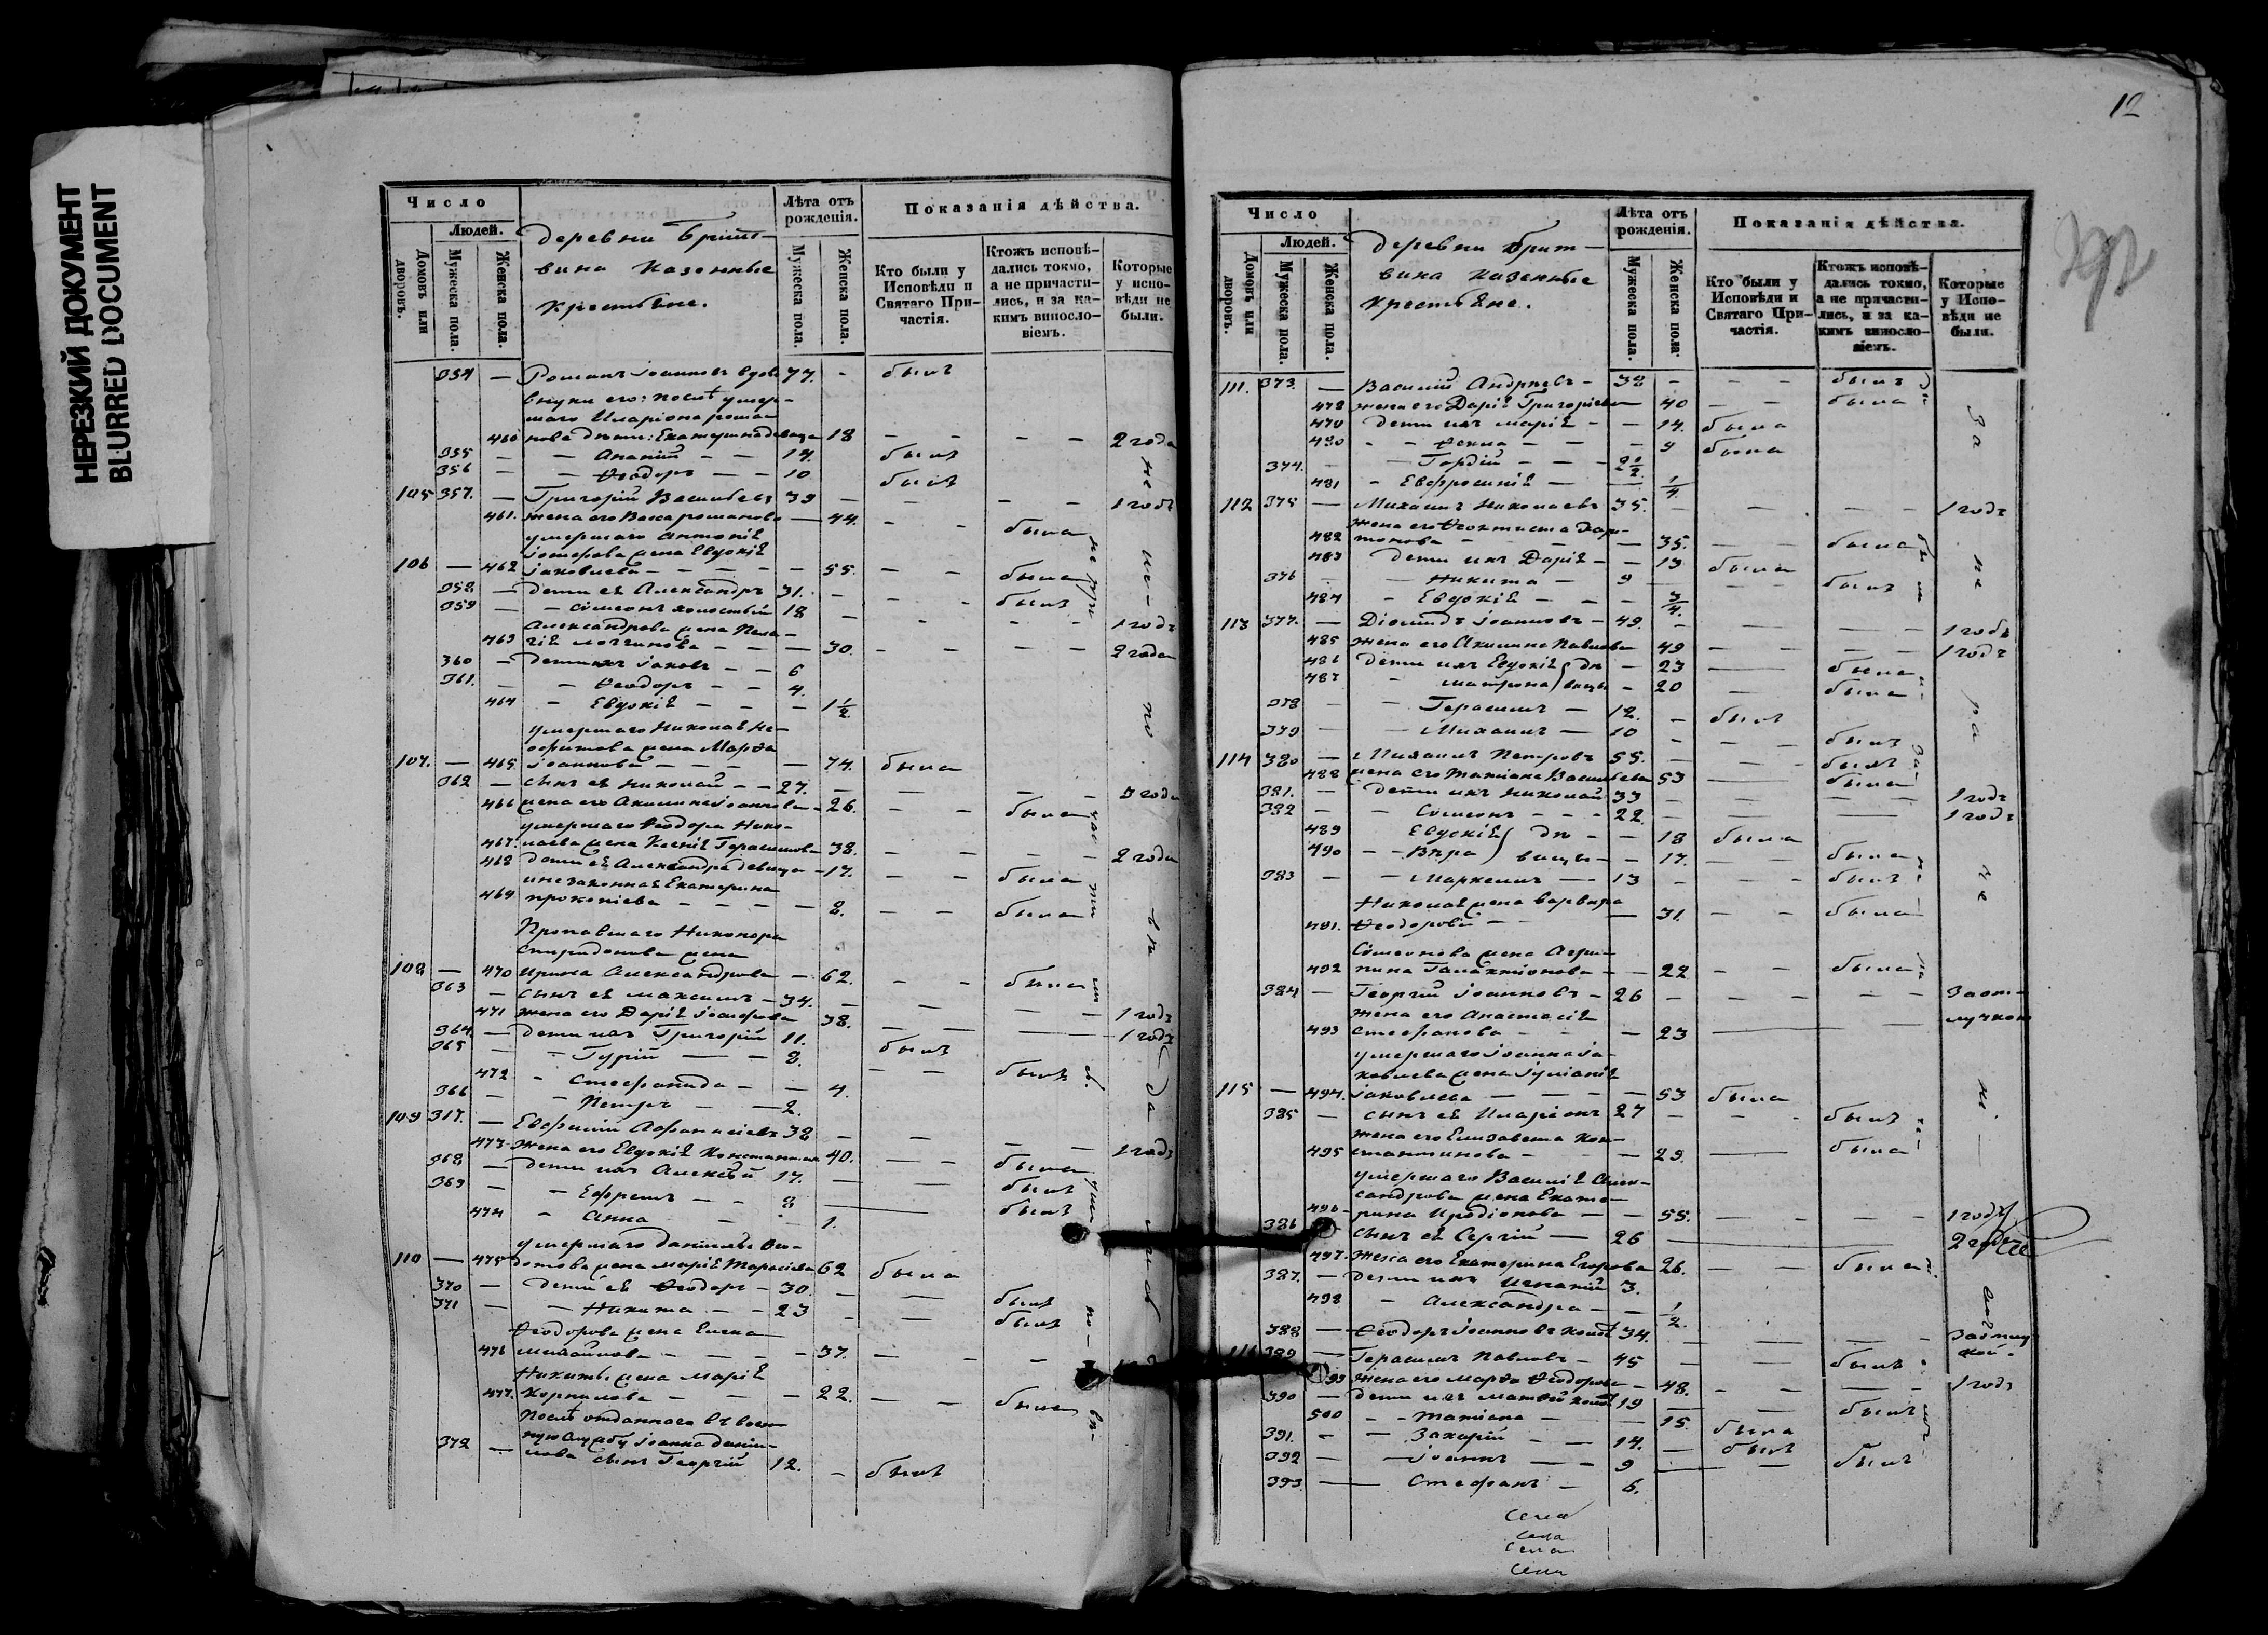 НЕРЕЗКИЙ ДОКУМЕНТ
BLURRED DOCUMENT
Число
Людей.
Домовъ или дворовъ.
Мужеска пола.
Женска пола.
деревни Брит-
вина казенные
крестьяне.
Лѣта отъ рожденія.
Мужеска пола.
Женска пола.
Показанія дѣйства.
Кто были у Исповѣди и Святаго Причастія.
Ктожъ исповѣдались токмо, а не причастились, и за какимъ винословіемъ.
Которые у исповѣди не были.
354 — Романъ Іоанновъ вдовъ 77. - былъ
внуки его: послѣ умер-
шаго Иларіона рома-
460 нова дѣти: Екатерина девица 18 - - - - 2 года
355 — — Ананій — — 14. былъ
356 — — Ѳеодоръ — — 10 былъ
105 357. — Григорій Васильевъ 39 — — - - 1 годъ
461. жена его Васса романова — 44. - - была
умершаго Антонія
жена Евдокія
106 — 462 Іаковлева — — — 55. - - была
358 — дети ея Александръ 31. - - - былъ
359 — — Сімеонъ холостый 18 — - - - 1 годъ
Александрова жена Пела-
463 гія логгинова — — — 30. - - - - 2 года
360 — дети ихъ Іаковъ — — 6
361. — — Ѳеодоръ — — 4.
464 — Евдокія — — — 1 1/2.
умершаго Николая Не-
жена Марѳа
107. — 465 Іоаннова — — — 74. была
362 — сынъ ея Николай — — 27. — — - - 3 года
466 жена его Акилина Іоаннова — 26. - - была
умершаго Ѳеодора Нико-
467. лаева жена Ксенія Герасимова 38. - - - - 2 года
468 дети ея Александра девица — 17. - - была
и незаконная Екатерина
469 прокопіева — — — — 8. - - была
Пропавшаго Никанора
Спиридонова жена
108 — 470 Ирина Александрова — 62. - - была
363 — сынъ ея Максимъ — 34. — — — - 1 годъ
471 жена его Дарія Іосифова 38. — — — 1 годъ
364. — дети ихъ Григорій 11. былъ
365 — — Гурій — — 8. - - былъ
472 — Стефанида — — 4.
366 — — Петръ — — 2.
109 317. — Евфимій Аѳанасіевъ 38 — — — - 1 годъ
473 жена его Евдокія 40. — - была
368 — дети ихъ Алексѣй 17. — — былъ
369 — — Ефремъ — — 8 — былъ
474 — Анна — — 1.
умершаго Даніила Ѳео-
110 — 475 дотова жена Марія Тарасіева 62 была
370 — дети ея Ѳеодоръ — 30. — — былъ
371 — — Никита — — 23 - — былъ
Ѳеодорова жена Елена
476 михаилова — — — — 37. — - —
Никиты жена Марія
477. Корнилова — — — 22. — - была
Послѣ отданнаго въ воен-
ную службу Іоанна Дании-
372 — лова сынъ Георгій 12. - былъ
12
Число
Людей.
Домовъ или дворовъ.
Мужеска пола.
Женска пола.
деревни Брит-
вина казенные
крестьяне.
Лѣта отъ рожденія.
Мужеска пола.
Женска пола.
Показанія дѣйства.
Кто были у Исповѣди и Святаго Причастія.
Ктожъ исповѣдались токмо, а не причастились, и за какимъ винословіемъ.
Которые у Исповѣди не были.
111. 373. — Василій Андреевъ — 38 - - - былъ
478 жена его Дарія Григоріева 40 — - была
479 дети ихъ Марія — — 14. была
480 - - Ѳекла — — 9 была
374. — — Гордій — — — 2 1/2
481 - Евфросинія — — 1/4.
112 375 — Михаилъ Николаевъ 35. — - - - 1 годъ
жена его Ѳеоктиста Хари-
482 тонова — — — 35. — - была
483 дети ихъ Дарія — — 13 была
376 - — Никита — 9 — — былъ
484 - Евдокія — — — 3/4.
113 377. — Діомидъ Іоанновъ — 49. — — — - 1 годъ
485 жена его Акилина Павлова 49 — — — 1 годъ
486 дети ихъ Евдокія } дѣ — 23 — была
487 - матрона } вицы — 20 — была
378 — — Герасимъ — 12. — былъ
379 — — Михаилъ — 10 — — былъ
114 380 — Михаилъ Петровъ 55. — — - былъ
488 жена его Татіана Васильева 53 — была
381. — дети ихъ Николай 33 — — — — 1 годъ
382 — — Сімеонъ — — — 22. — — — 1 годъ
489 Евдокія } дѣ — — 18 была
490 — — Вѣра } вицы — — 17. — - была
383 — — Маркеллъ — — 13 — — — былъ
Николая жена варвара
491. Ѳеодорова — — — 31. — - была
Сімеонова жена Агрип-
492 пина Галактіонова — — 22 - - была
384 — Георгій Іоанновъ — 26 — — — — За от-
жена его Анастасія лучкою
493 Стефанова — — — 23 — — —
умершаго Іоанна Іа-
ковлева жена Іуліанія
115 — 494. Іаковлева — — — — 53 была
385 — сынъ ея Иларіонъ 27 — — — былъ
жена его Елизавета Кон-
495 стантинова — — — 29. — была
умершаго Василія Алек-
сандрова жена Екате-
496 рина Иродіонова — — 55. — - - - 1 годъ
386 сынъ ея Сергій — 26 — — 2 года
497. жена его Екатерина Егорова 26. — — была
387. — дети ихъ Игнатій 3.
498 — Александра — — 1/2.
388 — Ѳеодоръ Іоанновъ холос 34. — — — —
389 — Герасимъ Павловъ — 45 — — былъ
499 жена его Марѳа Ѳеодорова — 48. - - — 1 годъ
390 — дети ихъ матвѣй холос 19 — — былъ
500 — — Татіана — — 15. была
391. — — Захарій — — 14. — былъ
392 — — Іоаннъ — — 9 — — былъ
393 — — Стефанъ — 6.
Села
Села
Села
Села